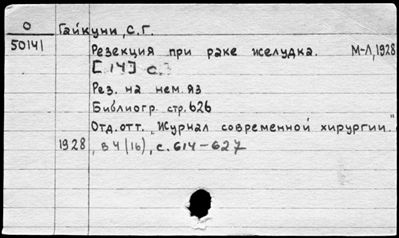 О Гайкуни, С.Г.
50141 Резекция при раке желудка. М-Л, 1928
[14] с.
Рез. на нем. яз
Библиогр. стр. 626
Отд. отт. "Журнал современной хирургии."
1928, в 4 (16), с. 614-627